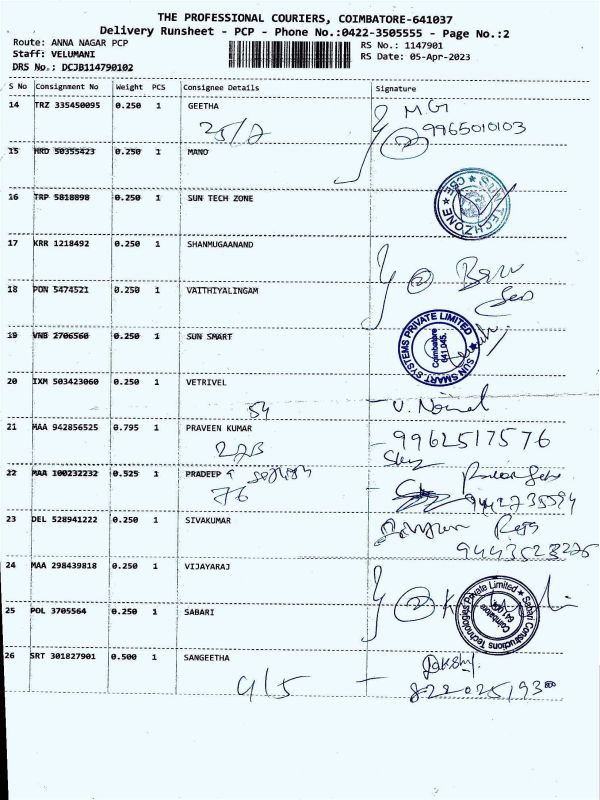 THE PROFESSIONAL COURIERS, COIMBATORE-641037
Delivery Runsheet - PCP - Phone No.:0422-3505555 - Page No.:2
Route: ANNA NAGAR PCP
RS No.: 1147901
Staff: VELUMANI
RS Date: 05-Apr-2023
DRS No.: DCJB114790102
S No Consignment No Weight PCS Consignee Details Signature
14 TRZ 335450095 0.250 1 GEETHA M.G
25/2 9965010103
15 HRD 50355423 0.250 1 MANO
16 TRP 5818898 0.250 1 SUN TECH ZONE
SUN TECHZONE ★ CBE ★
17 KRR 1218492 0.250 1 SHANMUGAANAND
18 PON 5474521 0.250 1 VAITHIYALINGAM
19 VNB 2706560 0.250 1 SUN SMART
SUN SMART SYSTEMS PRIVATE LIMITED ★ Coimbatore 641 045.
20 IXM 503423060 0.250 1 VETRIVEL
54
21 MAA 942856525 0.795 1 PRAVEEN KUMAR 9962517576
22B
22 MAA 100232232 0.525 1 PRADEEP
76
23 DEL 528941222 0.250 1 SIVAKUMAR
9443528226
24 MAA 298439818 0.250 1 VIJAYARAJ
25 POL 3705564 0.250 1 SABARI
Sabari Constructions Technologies Private Limited ★ Coimbatore
26 SRT 301827901 0.500 1 SANGEETHA
4/5